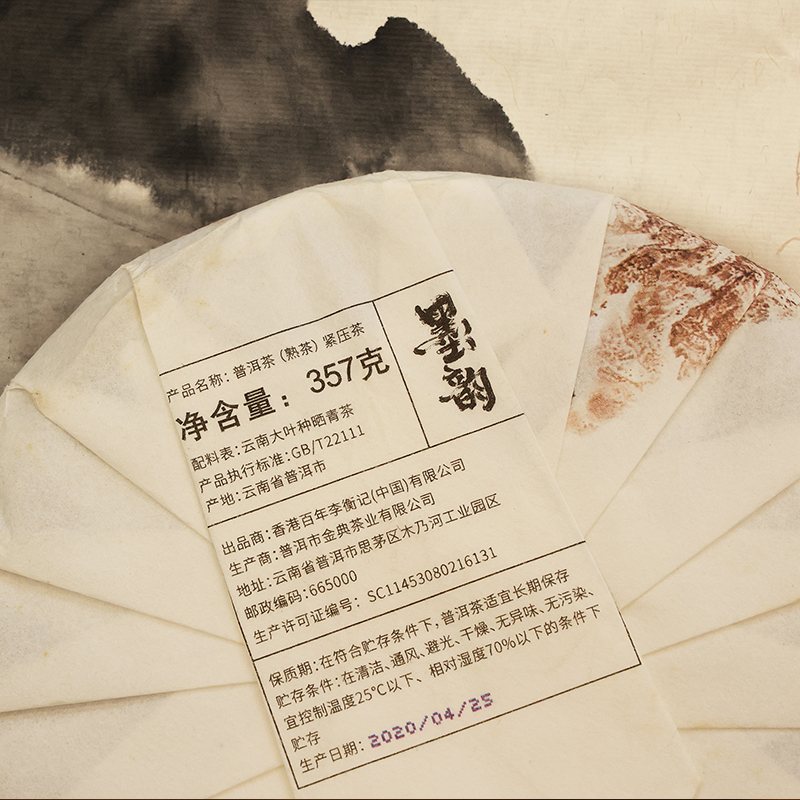 墨韵
产品名称：普洱茶（熟茶）紧压茶
净含量：357克
配料表：云南大叶种晒青茶
产品执行标准：GB/T22111
产地：云南省普洱市
出品商：香港百年李衡记(中国)有限公司
生产商：普洱市金典茶业有限公司
地址：云南省普洱市思茅区木乃河工业园区
邮政编码：665000
生产许可证编号：SC11453080216131
保质期：在符合贮存条件下，普洱茶适宜长期保存
贮存条件：在清洁、通风、避光、干燥、无异味、无污染、
宜控制温度25℃以下、相对湿度70%以下的条件下
贮存
生产日期：2020/04/25